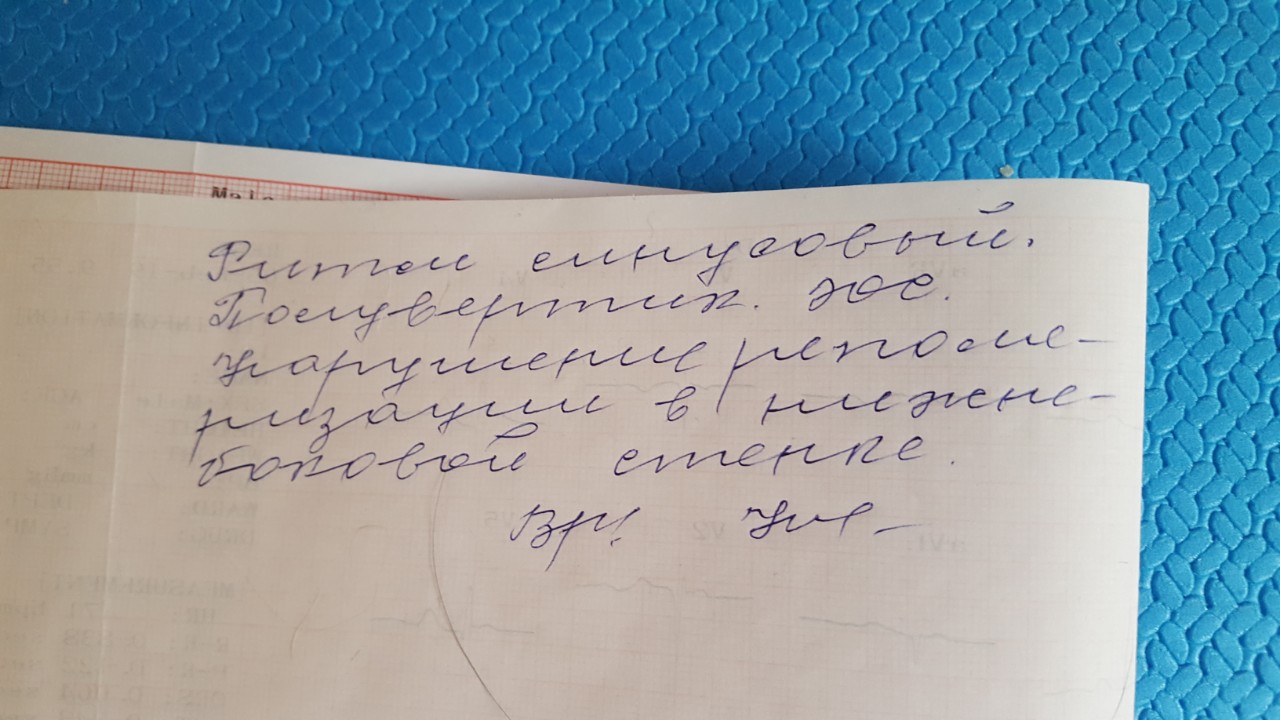 Male
Ритм синусовый.
Полувертик. эос.
Нарушение реполя-
ризации в нижне-
боковой стенке.
Вр: